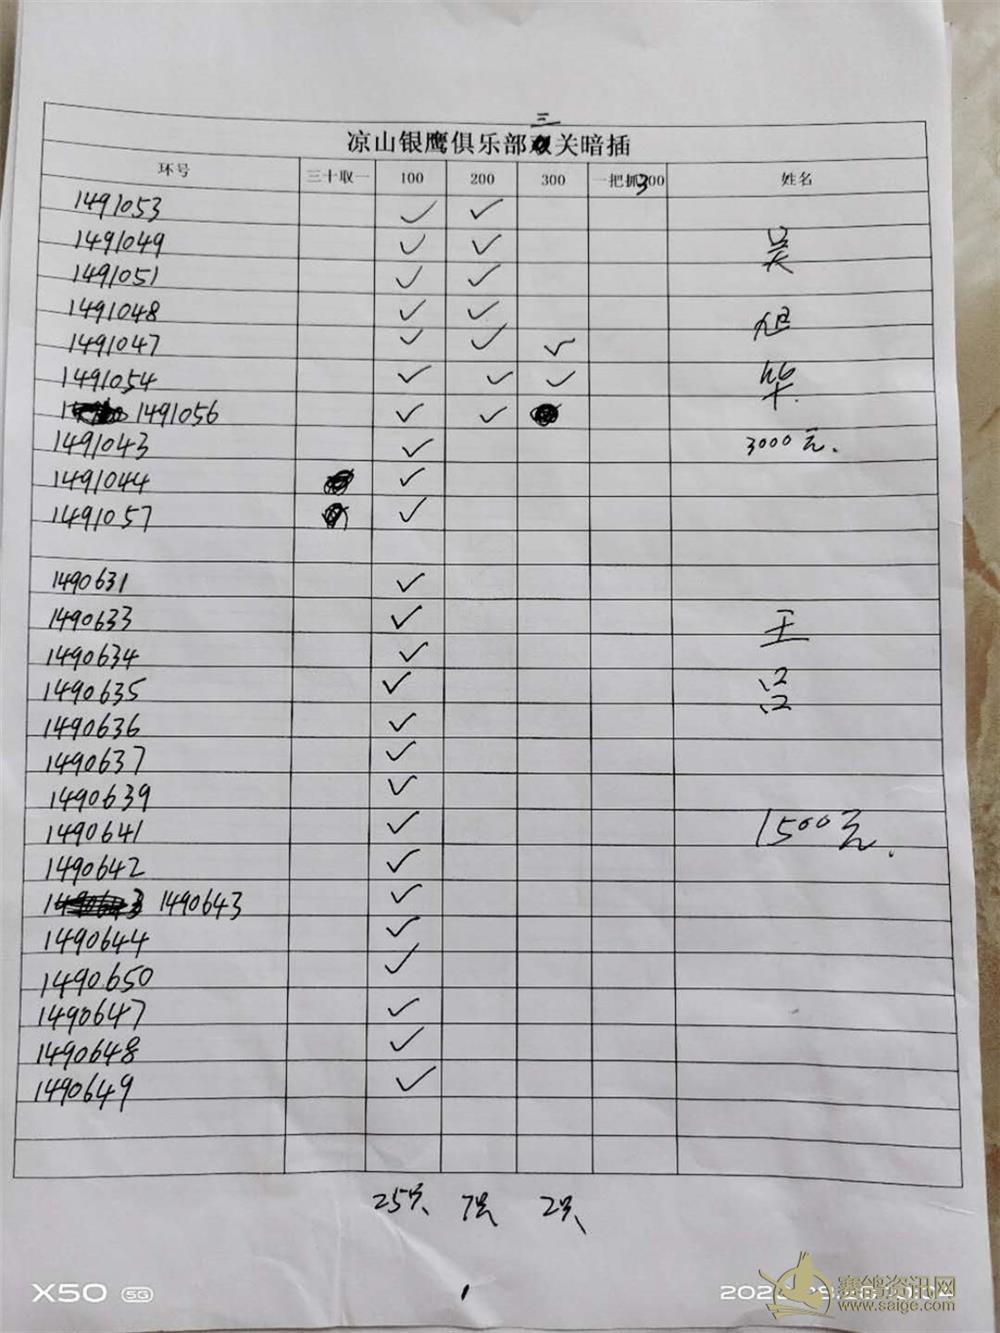 三
凉山银鹰俱乐部关暗插
环号 三十取一 100 200 300 一把抓300 姓名
1491053 ✓ ✓
1491049 ✓ ✓ 吴
1491051 ✓ ✓
1491048 ✓ ✓ 旭
1491047 ✓ ✓ ✓
1491054 ✓ ✓ ✓ 华
1491056 ✓ ✓
1491043 ✓ 3000元.
1491044 ✓
1491057 ✓
1490631 ✓
1490633 ✓ 王
1490634 ✓
1490635 ✓ 吕
1490636 ✓
1490637 ✓
1490639 ✓
1490641 ✓ 1500元.
1490642 ✓
1490643 ✓
1490644 ✓
1490650 ✓
1490647 ✓
1490648 ✓
1490649 ✓
25只 7只 2只
X50 5G
赛鸽资讯网
www.saige.com